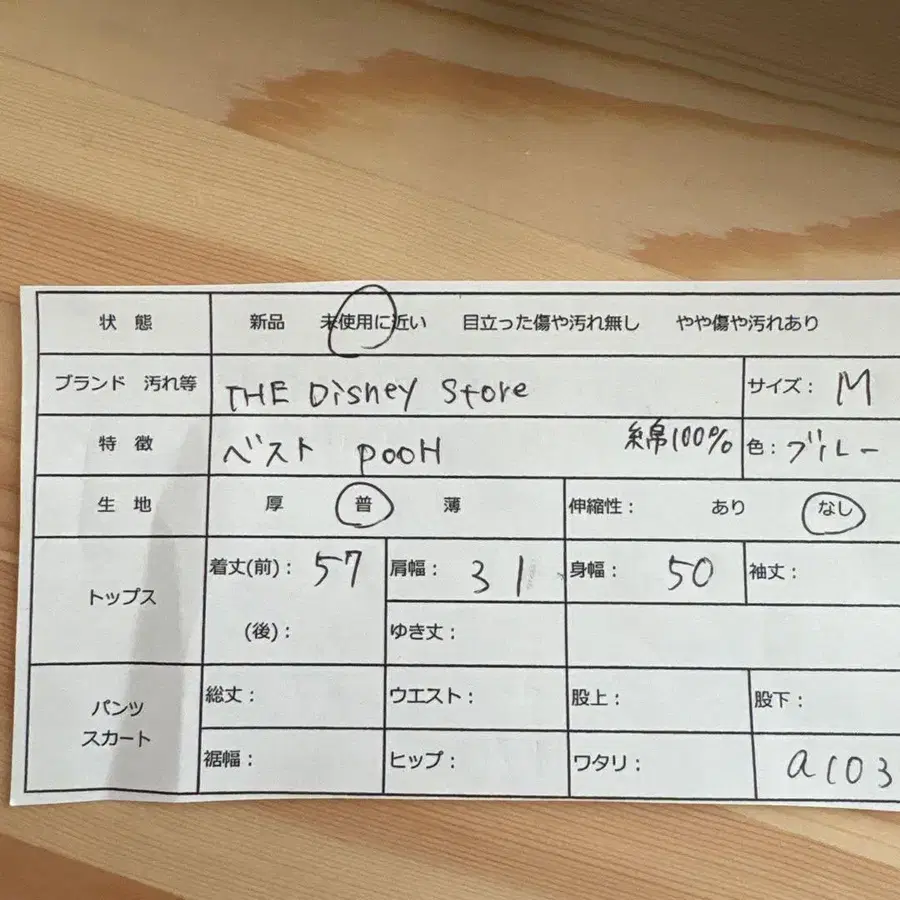 状 態 新品 未使用に近い 目立った傷や汚れ無し やや傷や汚れあり
ブランド 汚れ等 THE Disney Store サイズ： M
特 徴 ベスト POOH 綿100% 色： ブルー
生 地 厚 普 薄 伸縮性： あり なし
トップス 着丈(前)： 57 肩幅： 31 身幅： 50 袖丈：
(後)： ゆき丈：
パンツ スカート 総丈： ウエスト： 股上： 股下：
裾幅： ヒップ： ワタリ： a103